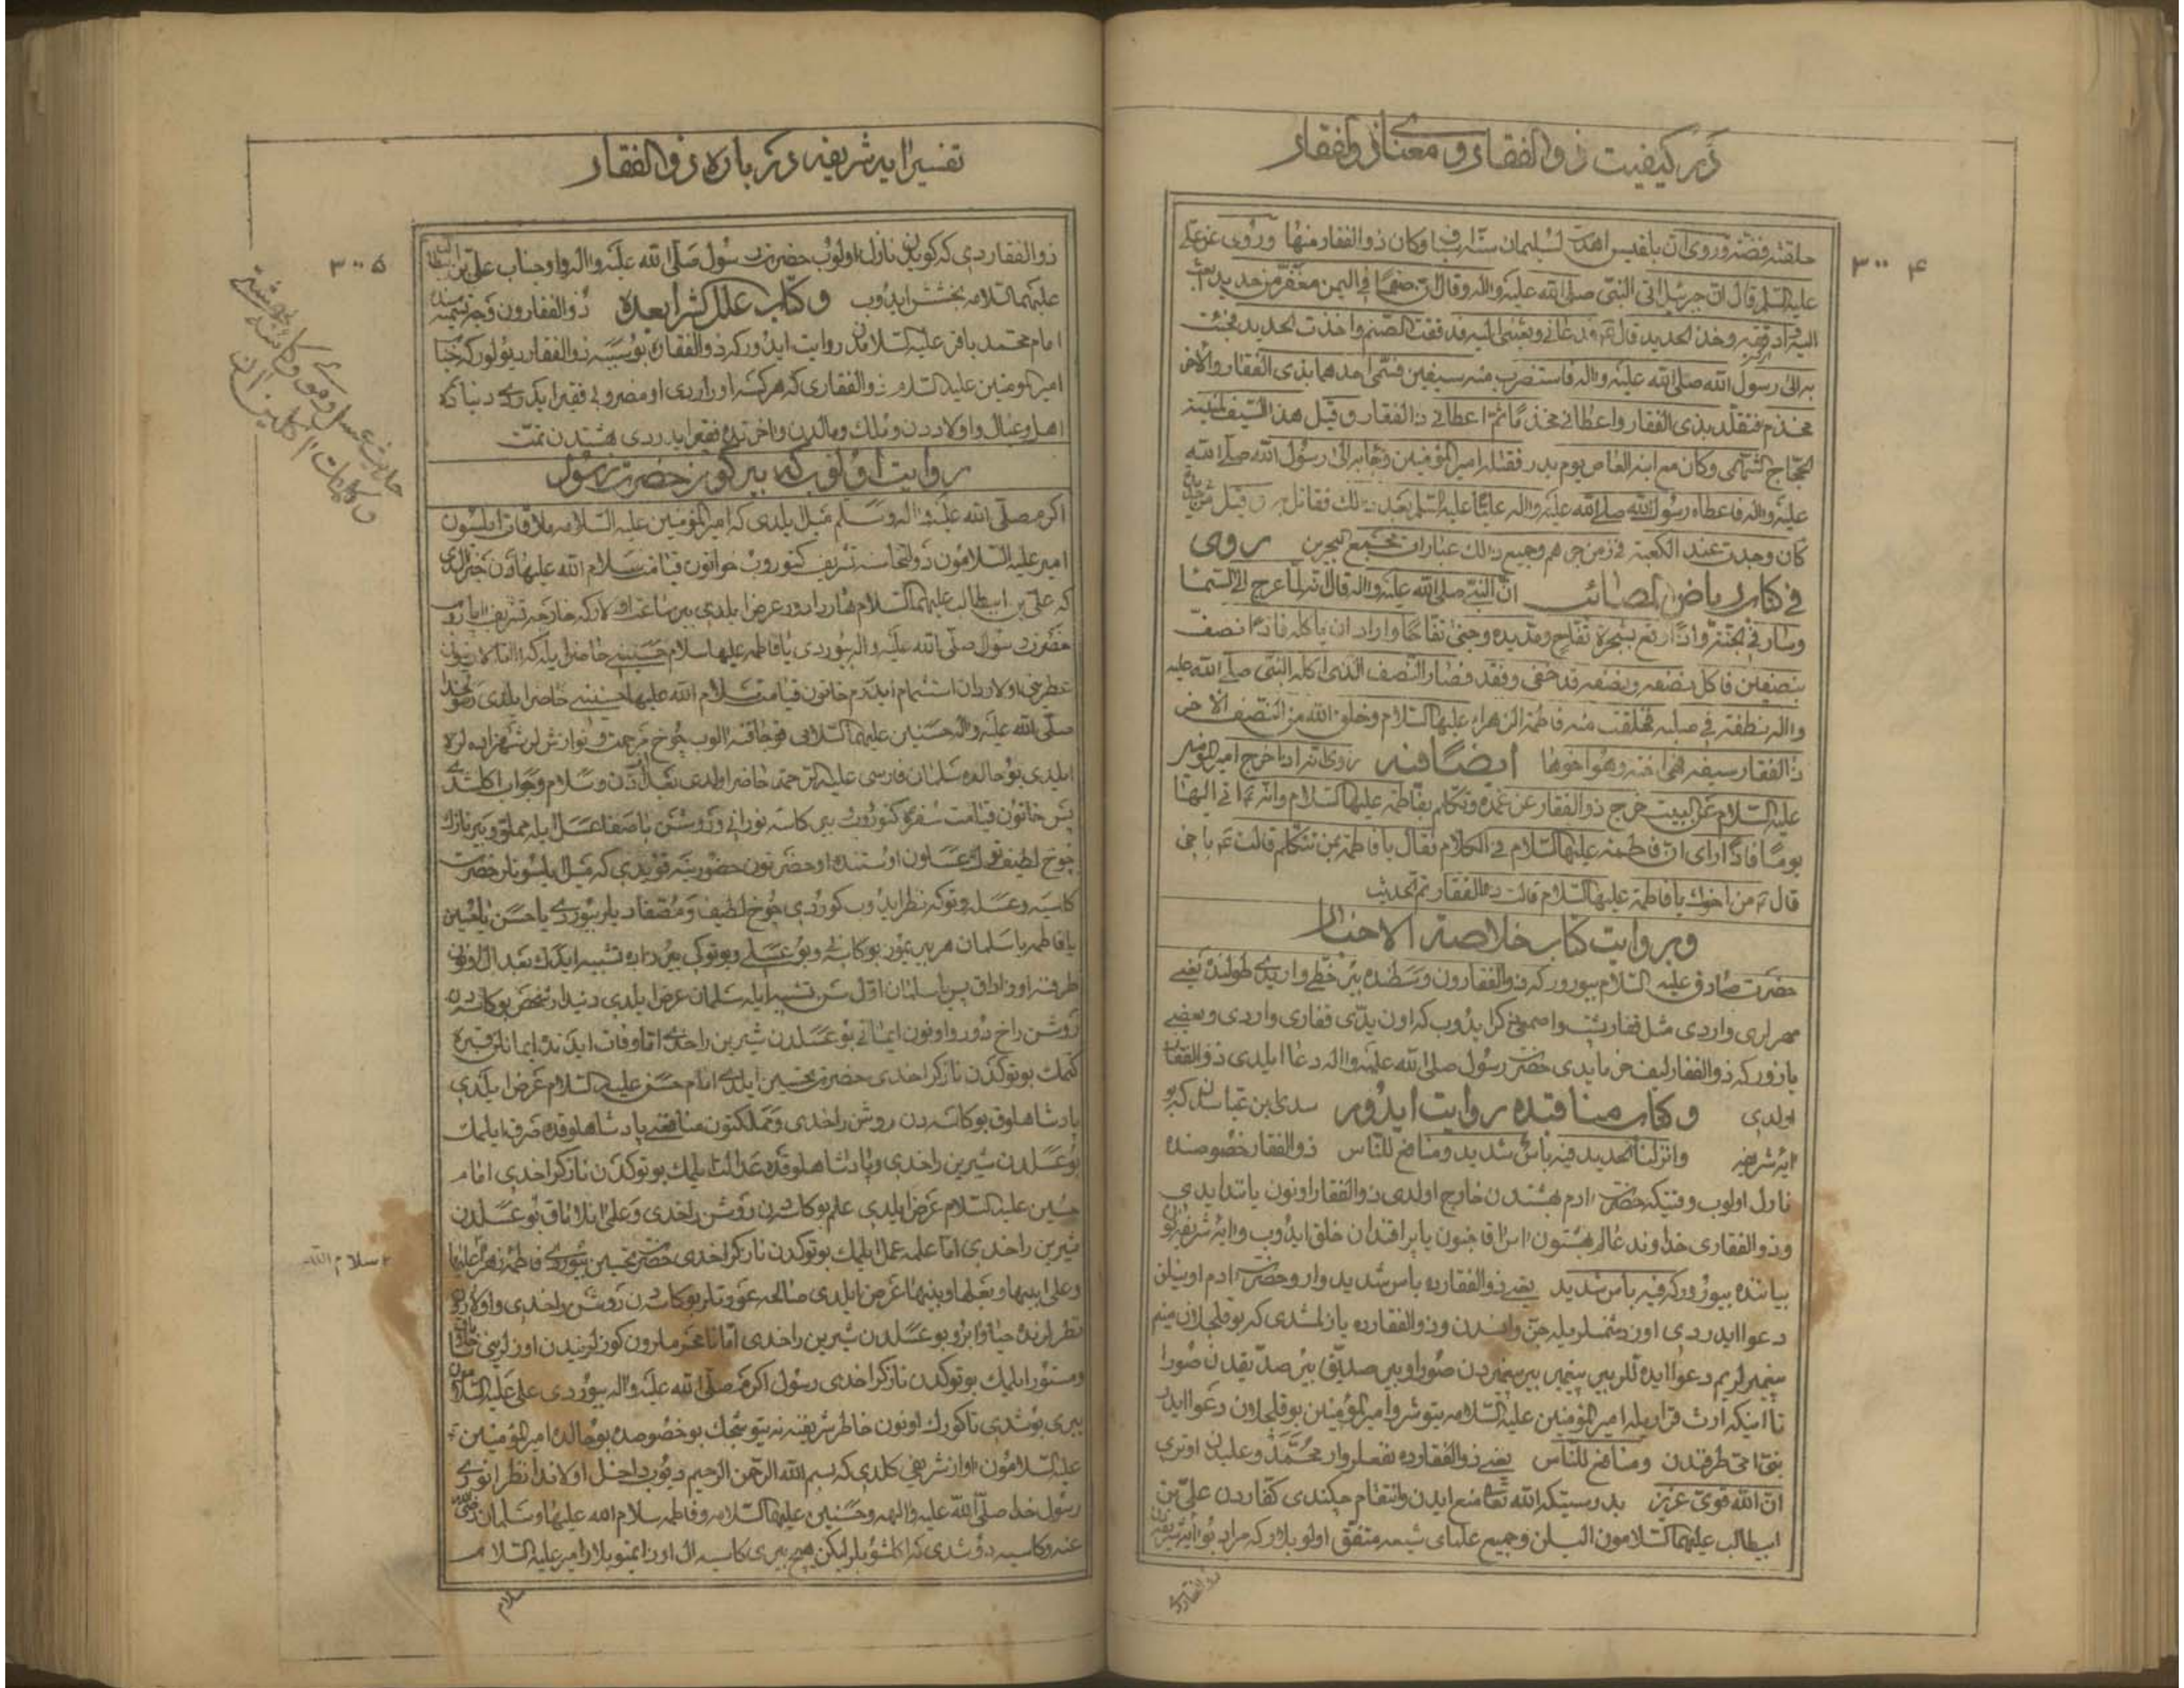 در کیفیت ذوالفقار و معنای ذوالفقار
۳۰۰۴
حلقته فضّة وروی ان بلقیس اهدت لسلیمان ستة اسیاف وکان ذوالفقار منها وروی عن علی
علیه السلم قال ان جبرئیل اتی النبی صلی الله علیه واله وقال ان صنما فی الیمن مغفر من حدید ابعث
الیه فادققه وخذ الحدید قال فدعانی وبعثنی الیه فدققت الصنم واخذت الحدید فجئت
به الی رسول الله صلی الله علیه واله فاستضرب منه سیفین فسمی احدهما بذی الفقار والاخر
مخذم فتقلد بذی الفقار واعطانی مخذما ثم اعطانی ذا الفقار وقیل هذا السیف لمنبه
الحجاج السهمی وکان مع ابنه العاص یوم بدر فقتله امیر المؤمنین وجاء به الی رسول الله صلی الله
علیه واله فاعطاه رسول الله صلی الله علیه واله علیا علیه السلم بعد ذلک فقاتل به وقیل من حدید
کان وجدت عند الکعبة فی زمن جرهم وجمیع ذلک عبارات مجمع البحرین روی
فی کتاب ریاض المصائب ان النبی صلی الله علیه واله قال انه لما عرج الی السما
وسار فی الجنة واذا ارتفع بشجرة تفاح ومد یده وجنی تفاحا واراد ان یاکله فاذا نصف
بنصفین فاکل بنصفه ونصفه قد خفی وفقد فصار النصف الذی اکله النبی صلی الله علیه
واله بنطفة فی صلبه فخلقت منه فاطمة الزهراء علیها السلام وخلق الله من النصف الاخر
ذا الفقار سیفه فهی اخته وهو اخوها ایضا فیه روی انه اذا خرج امیر المؤمنین
علیه السلام عن البیت خرج ذوالفقار عن غمده وتکلم بفاطمة علیها السلام وانه اتی الیها
یوما فاذا رای ان فاطمة علیها السلام فی الکلام فقال یا فاطمة بمن تتکلم قالت باخی
قال من اخوک یا فاطمة علیها السلام قالت ذا الفقار تم الحدیث
وبروایت کتاب خلاصة الاخبار
حضرت صادق علیه السلام بیورور که ذوالفقارون وسطنده بیر خطی واریدی طولنده یعنی
مهرلری واردی مثل فقار پشت واصمعی ذکر ایدوب که اون یدی فقاری واردی وبعضی
یازور که ذوالفقار لیف خرما یدی حضرت رسول صلی الله علیه واله دعا ایلدی ذوالفقار
اولدی وکتاب مناقبده روایت ایدور سدی بن عباسدن که بو
ایه شریفه وانزلنا الحدید فیه باس شدید ومنافع للناس ذوالفقار خصوصنده
نازل اولوب وقتیکه حضرت ادم بهشتدن خارج اولدی ذوالفقار اونون یانندایدی
وذوالفقاری خداوند عالم بهشتون اس اقاجنون یاپراقندان خلق ایدوب وایه شریفه
بیاننده بیورور که فیه باس شدید یعنی ذوالفقارده باس شدید وار وحضرت ادم اونیلن
دعوا ایدردی اوز دشمنلریله جن وانسدن وذوالفقارده یازلمشدی که بو قلجلان منیم
پیغمبرلریم دعوا ایده لر بیر پیغمبر بیر پیغمبردن صورا وبیر صدیق بیر صدیقدن صورا
تا اینکه ارث قراریله امیر المؤمنین علیه السلامه یتوشر وامیر المؤمنین بو قلجلان دعوا ایدر
نبی امی طرفندن ومنافع للناس یعنی ذوالفقارده نفعلر وار محمد وعلیدن اوتری
ان الله قوی عزیز بدرستیکه الله تعالی منع ایدن وانتقام چکندی کفاردن علی بن
ابیطالب علیهما السلامون الیلن وجمیع علمای شیعه متفق اولوبلار که مراد بو ایه شریفه
ذوالفقاردی
تفسیر ایه شریفه در باره ذوالفقار
۳۰۰۵
ذوالفقاردی که کویدن نازل اولوب حضرت رسول صلی الله علیه واله و اوجناب علی بن
علیهما السلامه بخشش ایدوب وکتاب علل الشرایعده ذوالفقارون وجه تسمیه سنده
امام محمد باقر علیه السلامدن روایت ایدور که ذوالفقاره بو سببه ذوالفقار دیولور که جناب
امیر المومنین علیه السلام ذوالفقاری که هر کسه اوراردی او مضروبی فقیر ایدردی دنیاده
اهل وعیال واولاددن وملک ومالدن واخرتده فقیر ایدردی بهشتدن تمت
روایت اولوب که بیر کون حضرت رسول
اکرم صلی الله علیه واله وسلم میل ایلدی که امیر المؤمنین علیه السلامه ملاقات ایلسون
امیر علیه السلامون دولتخانه سنه تشریف کتوروب خواتون قیامت سلام الله علیهادن خبر الدی
که علی بن ابیطالب علیهما السلام هاردادور عرض ایلدی بیر ساعت اولار که خارجه تشریف اپاروب
حضرت رسول صلی الله علیه واله بیوردی یا فاطمه علیها سلام حسنینی حاضر ایله که
عطرینی اولاردان استشمام ایدرم خاتون قیامت سلام الله علیها حسنینی حاضر ایلدی رسول خدا
صلی الله علیه واله حسنین علیهما السلامی قوجاقنه الوب چوخ مرحمت ونوازش لر شهزاده لره
ایلدی بو حالده سلمان فارسی علیه الرحمة حاضر اولدی بعد اذن وسلام وجواب اکلشدی
پس خاتون قیامت سفره کتوروب بیر کاسه نورانی وروشن باصفا عسل ایله مملو وبیر نازک
چوخ لطیف توک عسلون اوستنده او حضرتون حضورینه قویدی که میل ایلسونلر حضرت
کاسیه وعسله وتوکه نظر ایدوب کوردی چوخ لطیف ومصفادیلر بیوردی یا حسن یا حسین
یا فاطمه یا سلمان هر بیریوز بو کاسه نی وبو عسلی وبو توکی بیر زاده تشبیه ایدک بعد ال اونون
طرفنه اوزاداق پس یا سلمان اول سن تشبیه ایله سلمان عرض ایلدی دیندار شخص بو کاسه دن
روشن راخ دور واونون ایمانی بو عسلدن شیرین راخدی اما وفات ایدنده ایمانلن قبره
کتمک بو توکدن نازکراخدی حضرت تحسین ایلدی امام حسن علیه السلام عرض ایلدی
پادشاهلوق بو کاسه دن روشن راخدی ومملکتون منافعنی پادشاهلوقده صرف ایلمک
بو عسلدن شیرین راخدی وپادشاهلوقده عدالت ایلمک بو توکدن نازکراخدی امام
حسین علیه السلام عرض ایلدی علم بو کاسه دن روشن راخدی وعلمی انلاماق بو عسلدن
شیرین راخدی اما علمه عمل ایلمک بو توکدن نازکراخدی حضرت تحسین بیوردی فاطمه زهرا علیها
وعلی ابیها وبعلها وبنیها عرض ایلدی صالحه عورتلر بو کاسه دن روشن راخدی واولارون
نظرلرنده حیا وابرو بو عسلدن شیرین راخدی اما نامحرملرون کوزلرندن اوزلرینی
ومستور ایلمک بو توکدن نازکراخدی رسول اکرم صلی الله علیه واله بیوردی علی علیه السلامون
یری بوشدی تا کورک اونون خاطر شریفنه نه یتوشجک بو خصوصده بو حالده امیر المؤمنین
علیه السلامون اواز شریفی کلدی که بسم الله الرحمن الرحیم دیوب داخل اولاندا نظر انوری
رسول خدا صلی الله علیه واله وحسنین علیهما السلامه وفاطمه سلام الله علیها وسلمان رضی الله
عنه وکاسیه دوشدی که اکلشوبلر لیکن هیچ بیری کاسیه ال اوزاتمیوبلار امیر علیه السلام
سلام
سلام الله